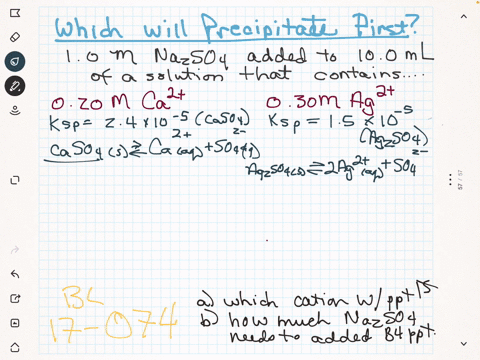 Which will Precipitate First?
1.0 M Na₂SO₄ added to 10.0 mL
of a solution that contains....
0.20 M Ca²⁺
0.30 M Ag²⁺
Ksp = 2.4 × 10⁻⁵ (CaSO₄)
Ksp = 1.5 × 10⁻⁵
(Ag₂SO₄)
CaSO₄(s) ⇌ Ca²⁺(aq) + SO₄²⁻(aq)
Ag₂SO₄(s) ⇌ 2Ag²⁺(aq) + SO₄²⁻
BL
17-074
a) which cation w/ ppt 1st
b) how much Na₂SO₄
needs to added B4 ppt.
57 / 57